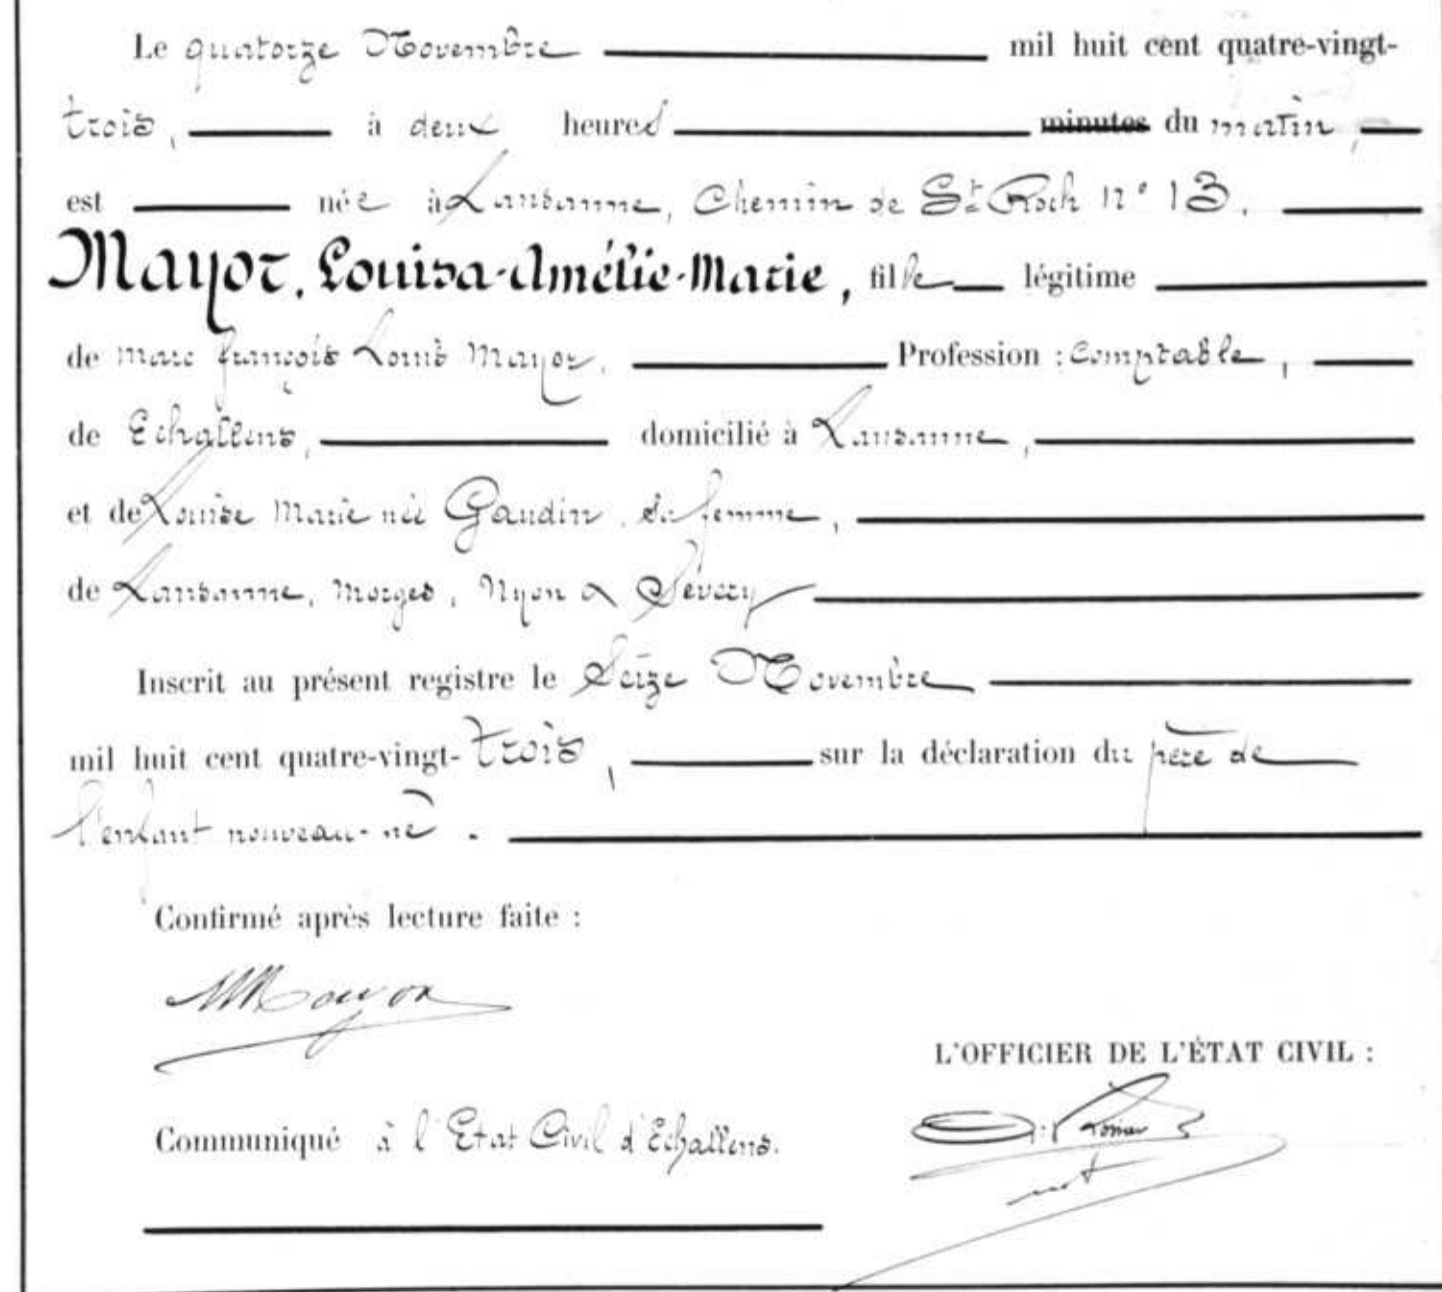 Le quatorze Novembre mil huit cent quatre-vingt-
trois, à deux heures minutes du matin,
est née à Lausanne, Chemin de St Roch n° 13.
Mayor, Louisa-Amélie-Marie, fille légitime
de Marc françois Louis Mayor, Profession : Comptable,
de Echallens, domicilié à Lausanne,
et de Louise Marie née Gaudin, sa femme,
de Lausanne, Morges, Nyon & Sévery
Inscrit au présent registre le Seize Novembre
mil huit cent quatre-vingt-trois, sur la déclaration du père de
l'enfant nouveau-né.
Confirmé après lecture faite :
L'OFFICIER DE L'ÉTAT CIVIL :
Communiqué à l'Etat Civil d'Echallens.
not